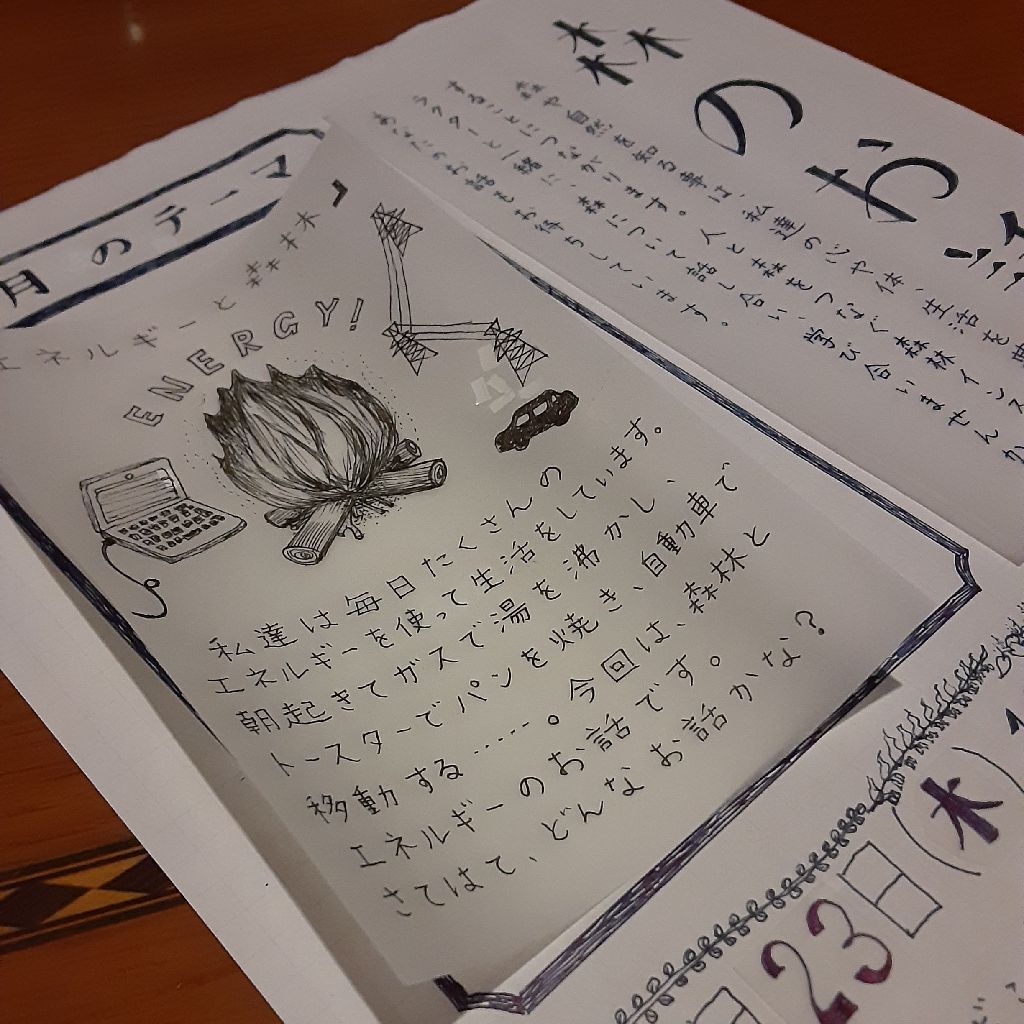 森のお話
森や自然を知る事は、私達の心や体、生活を
することにつながります。人と森をつなぐ森林インス
ラクターと一緒に、森について話し合い、学び合いませんか
あなたのお話もお待ちしています。
月のテーマ
エネルギーと森林
ENERGY!
私達は毎日たくさんの
エネルギーを使って生活をしています。
朝起きてガスで湯を沸かし、
トースターでパンを焼き、自動車で
移動する……。今回は、森林と
エネルギーのお話です。
さてはて、どんなお話かな？
23日(木)